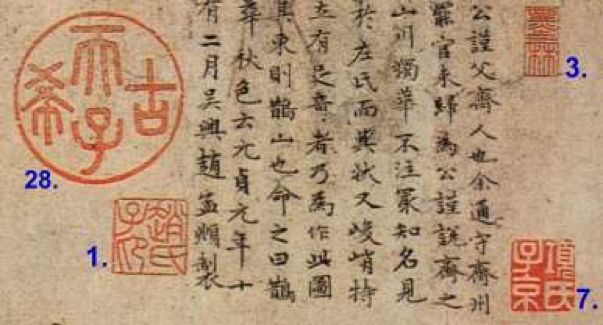 公謹父齊人也余通守齊州
罷官來歸為公謹說齊之
山川獨華不注冣知名見
於左氏而其狀又峻峭特
立有足奇者乃為作此圖
其東則鵲山也命之曰鵲
華秋色云元貞元年十
有二月吳興趙孟頫製
墨林
3.
項氏子京
7.
古希天子
28.
趙氏子昂
1.